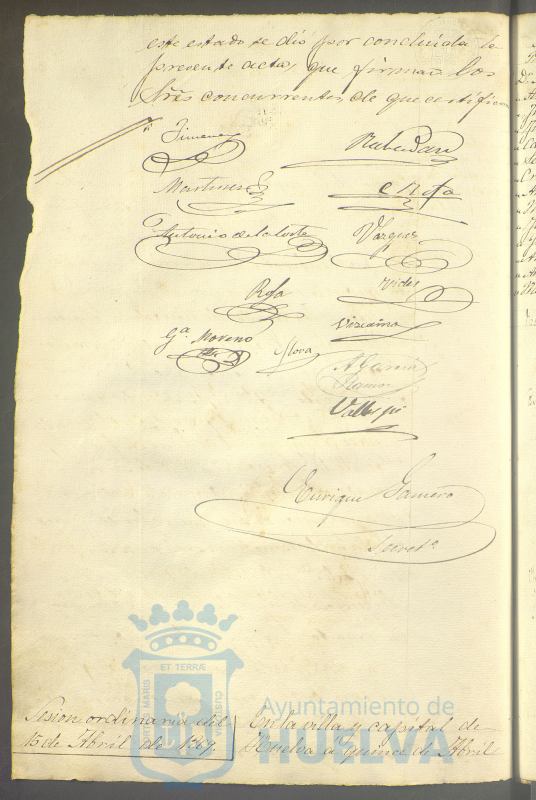 este estado se dió por concluida la
presente acta, que firman los
Sres concurrentes de que certifico
Jimenez
Martinez
Antonio de la Corte
Rofa
Gª Moreno
Mora
Vazquez
Vides
Vizcaino
A Garcia
Ramos
Enrique Gamero
Secretº
Sesion ordinaria del
15 de Abril de 1869.
En la villa y capital de
Huelva á quince de Abril
PORTUS MARIS
ET TERRÆ
CUSTODIA
Ayuntamiento de
HUELVA